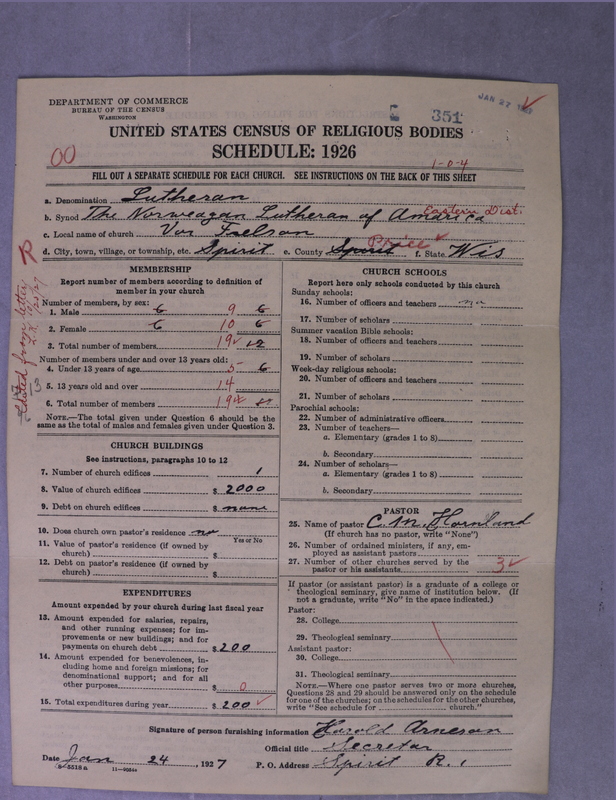 DEPARTMENT OF COMMERCE
BUREAU OF THE CENSUS
WASHINGTON
351
JAN 27
UNITED STATES CENSUS OF RELIGIOUS BODIES
00
SCHEDULE: 1926
1-0-4
FILL OUT A SEPARATE SCHEDULE FOR EACH CHURCH. SEE INSTRUCTIONS ON THE BACK OF THIS SHEET
a. Denomination Lutheran
b. Synod The Norweagan Lutheran of America Eastern Dist.
c. Local name of church Vor Frelson
d. City, town, village, or township, etc. Spirit e. County Spirit Price f. State Wis
MEMBERSHIP
Report number of members according to definition of
member in your church
Number of members, by sex:
1. Male 6 9 6
2. Female 6 10 6
3. Total number of members 19 12
Number of members under and over 13 years old:
4. Under 13 years of age 5 6
5. 13 years old and over 14
6. Total number of members 19
NOTE.—The total given under Question 6 should be the
same as the total of males and females given under Question 3.
CHURCH BUILDINGS
See instructions, paragraphs 10 to 12
7. Number of church edifices 1
8. Value of church edifices $ 2000
9. Debt on church edifices $ none
10. Does church own pastor's residence no
Yes or No
11. Value of pastor's residence (if owned by
church) $
12. Debt on pastor's residence (if owned by
church) $
EXPENDITURES
Amount expended by your church during last fiscal year
13. Amount expended for salaries, repairs,
and other running expenses; for im-
provements or new buildings; and for
payments on church debt $ 200
14. Amount expended for benevolences, in-
cluding home and foreign missions; for
denominational support; and for all
other purposes $ 0
15. Total expenditures during year $ 200
CHURCH SCHOOLS
Report here only schools conducted by this church
Sunday schools:
16. Number of officers and teachers no
17. Number of scholars
Summer vacation Bible schools:
18. Number of officers and teachers
19. Number of scholars
Week-day religious schools:
20. Number of officers and teachers
21. Number of scholars
Parochial schools:
22. Number of administrative officers
23. Number of teachers—
a. Elementary (grades 1 to 8)
b. Secondary
24. Number of scholars—
a. Elementary (grades 1 to 8)
b. Secondary
PASTOR
25. Name of pastor C. M. Hornland
(If church has no pastor, write "None")
26. Number of ordained ministers, if any, em-
ployed as assistant pastors
27. Number of other churches served by the
pastor or his assistants 3
If pastor (or assistant pastor) is a graduate of a college or
theological seminary, give name of institution below. (If
not a graduate, write "No" in the space indicated.)
Pastor:
28. College
29. Theological seminary
Assistant pastor:
30. College
31. Theological seminary
NOTE.—Where one pastor serves two or more churches,
Questions 28 and 29 should be answered only on the schedule
for one of the churches; on the schedules for the other churches,
write "See schedule for church."
Signature of person furnishing information Harold Arneson
Official title Secretar
Date Jan 24, 1927 P. O. Address Spirit R. 1
8-5518a 11-9984